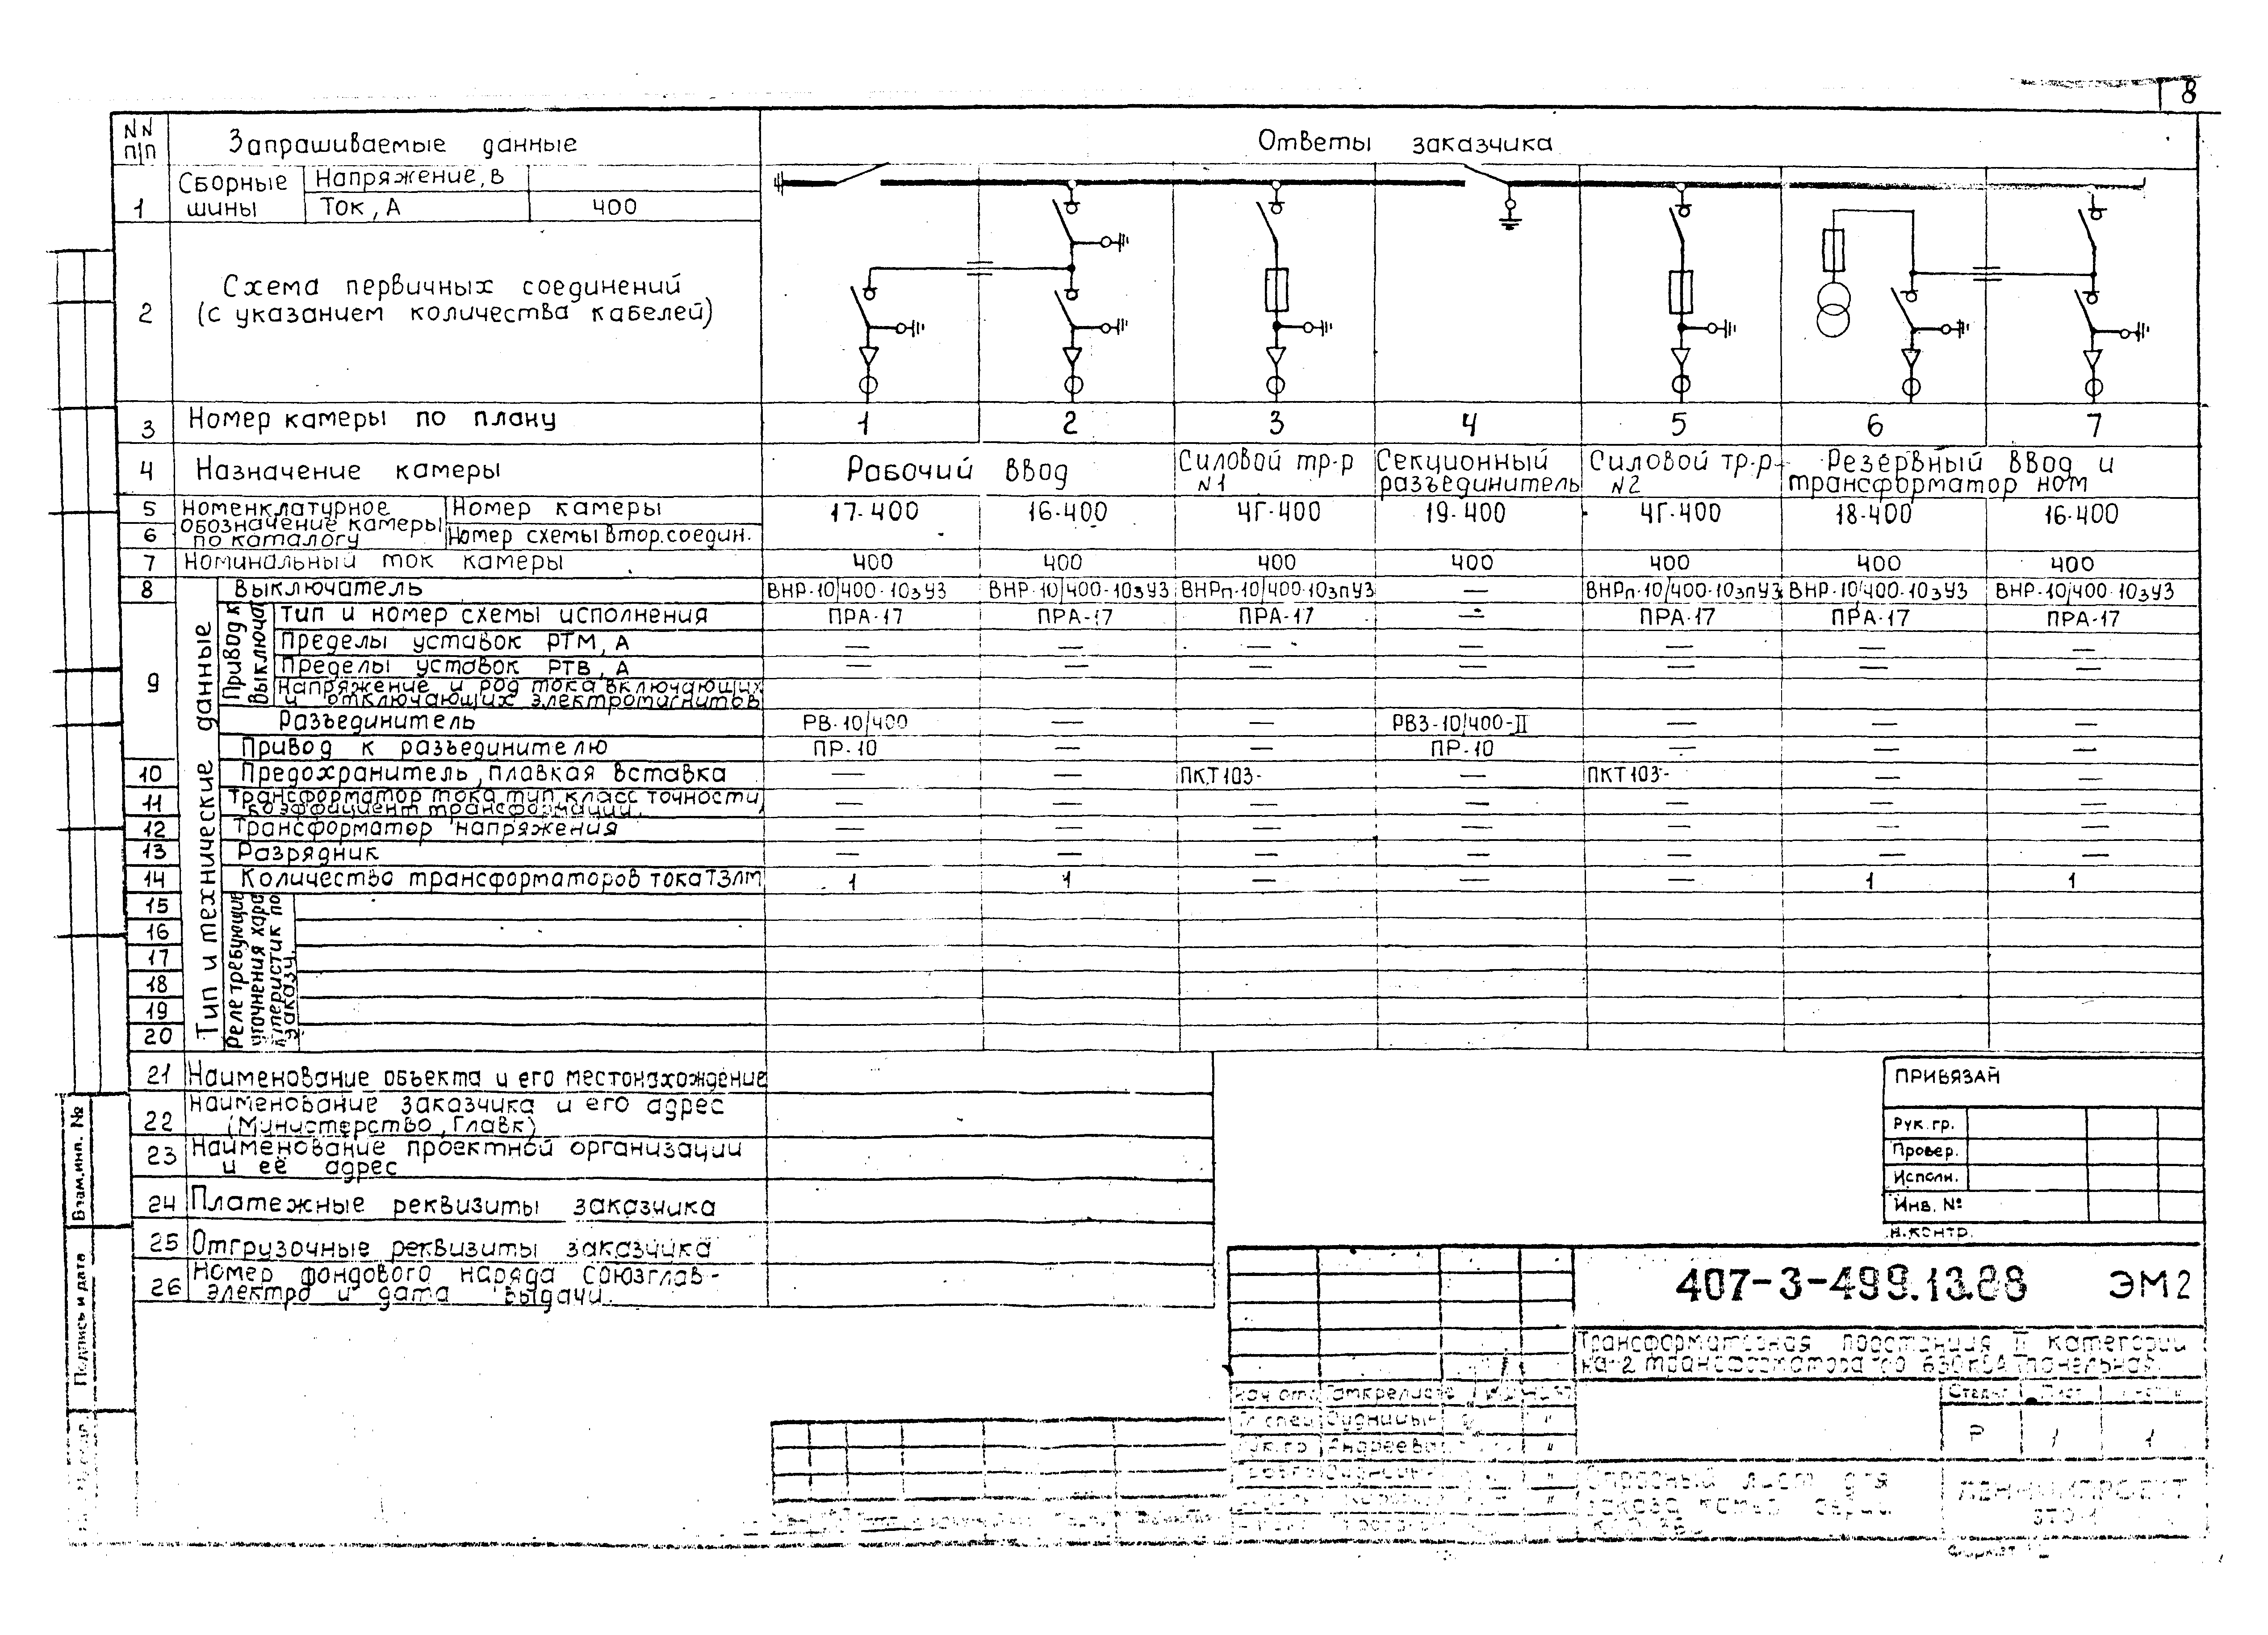 8
NN п/п Запрашиваемые данные Ответы заказчика
1 Сборные шины Напряжение, в
Ток, А 400
2 Схема первичных соединений
(с указанием количества кабелей)
3 Номер камеры по плану 1 2 3 4 5 6 7
4 Назначение камеры Рабочий ввод Силовой тр-р N1 Секционный разъединитель Силовой тр-р N2 Резервный ввод и трансформатор ном
5 Номенклатурное обозначение камеры по каталогу Номер камеры 17-400 16-400 4Г-400 19-400 4Г-400 18-400 16-400
6 Номер схемы втор. соедин.
7 Номинальный ток камеры 400 400 400 400 400 400 400
Тип и технические данные
8 Выключатель ВНР-10/400-10зУ3 ВНР-10/400-10зУ3 ВНРп-10/400-10зпУ3 — ВНРп-10/400-10зпУ3 ВНР-10/400-10зУ3 ВНР-10/400-10зУ3
9 Привод к выключа
Тип и номер схемы исполнения ПРА-17 ПРА-17 ПРА-17 — ПРА-17 ПРА-17 ПРА-17
Пределы уставок РТМ, А — — — — — — —
Пределы уставок РТВ, А — — — — — — —
Напряжение и род тока включающих
и отключающих электромагнитов
Разъединитель РВ-10/400 — — РВЗ-10/400-II — — —
Привод к разъединителю ПР-10 — — ПР-10 — — —
10 Предохранитель, плавкая вставка — — ПКТ103- — ПКТ103- — —
11 Трансформатор тока тип, класс точности,
коэффициент трансформации. — — — — — — —
12 Трансформатор напряжения — — — — — — —
13 Разрядник — — — — — — —
14 Количество трансформаторов тока ТЗЛМ 1 1 — — — 1 1
Реле требующие уточнения хара ктеристик по заказу.
15
16
17
18
19
20
21 Наименование объекта и его местонахождение
22 Наименование заказчика и его адрес
(Министерство, Главк)
23 Наименование проектной организации
и её адрес
24 Платежные реквизиты заказчика
25 Отгрузочные реквизиты заказчика
26 Номер фондового наряда Союзглав-
электро и дата выдачи.
ПРИВЯЗАН
Рук. гр.
Провер.
Исполн.
Инв. №
Н. контр.
407-3-499.13.88 ЭМ2
Трансформаторная подстанция II категории
на 2 трансформатора по 630 кВА (панельная)
Р 1 1
Опросный лист для
заказа камер серии
Взам. инв. №
Подпись и дата